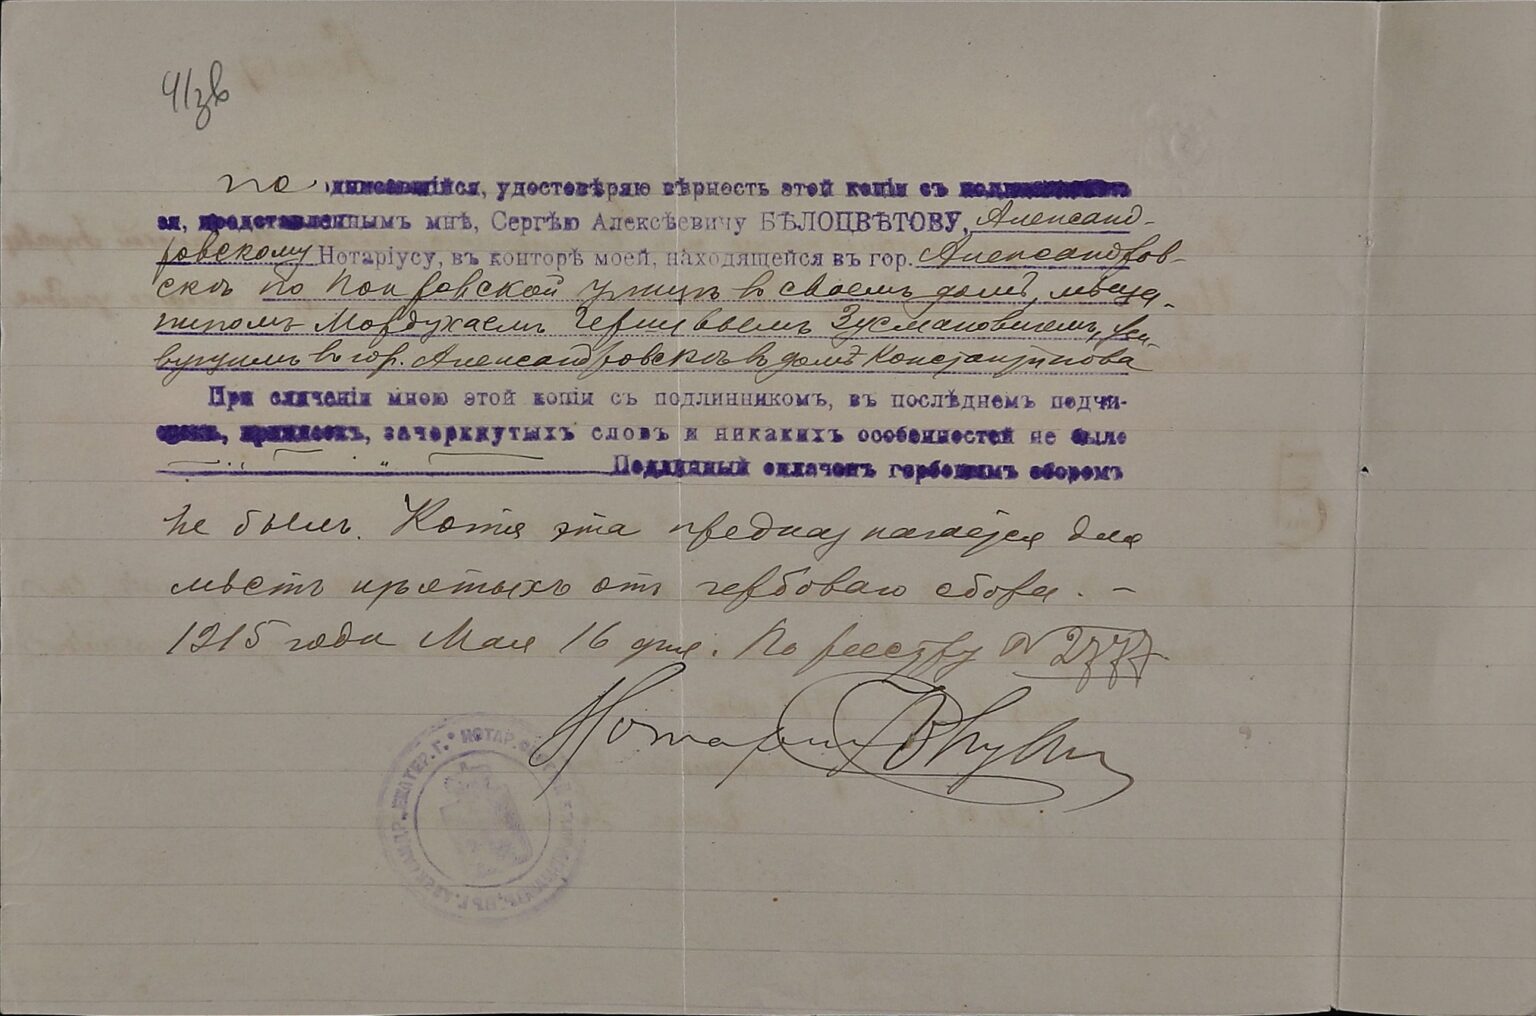 4/зв
подписавшійся, удостовѣряю вѣрность этой копіи съ подлинникомъ
ея, представленнымъ мнѣ, Сергѣю Алексѣевичу БѢЛОЦВѢТОВУ, Александ-
ровскому Нотаріусу, въ конторѣ моей, находящейся въ гор. Александров-
скѣ по Покровской улицѣ въ своемъ домѣ, мѣща-
ниномъ Мордухаемъ Зусмановичемъ, жи-
вущимъ въ гор. Александровскѣ въ домѣ Константинова
При сличеніи мною этой копіи съ подлинникомъ, въ послѣднемъ подчи-
стокъ, приписокъ, зачеркнутыхъ словъ и никакихъ особенностей не было
Подлинный оплаченъ гербовымъ сборомъ
не былъ. Копія эта предназначается для
мѣстъ изъятыхъ отъ гербоваго сбора. –
1915 года Мая 16 дня. По реестру № 2777
Нотаріусъ
НОТАР. АЛЕКСАНДР. ЕКАТЕР. Г.